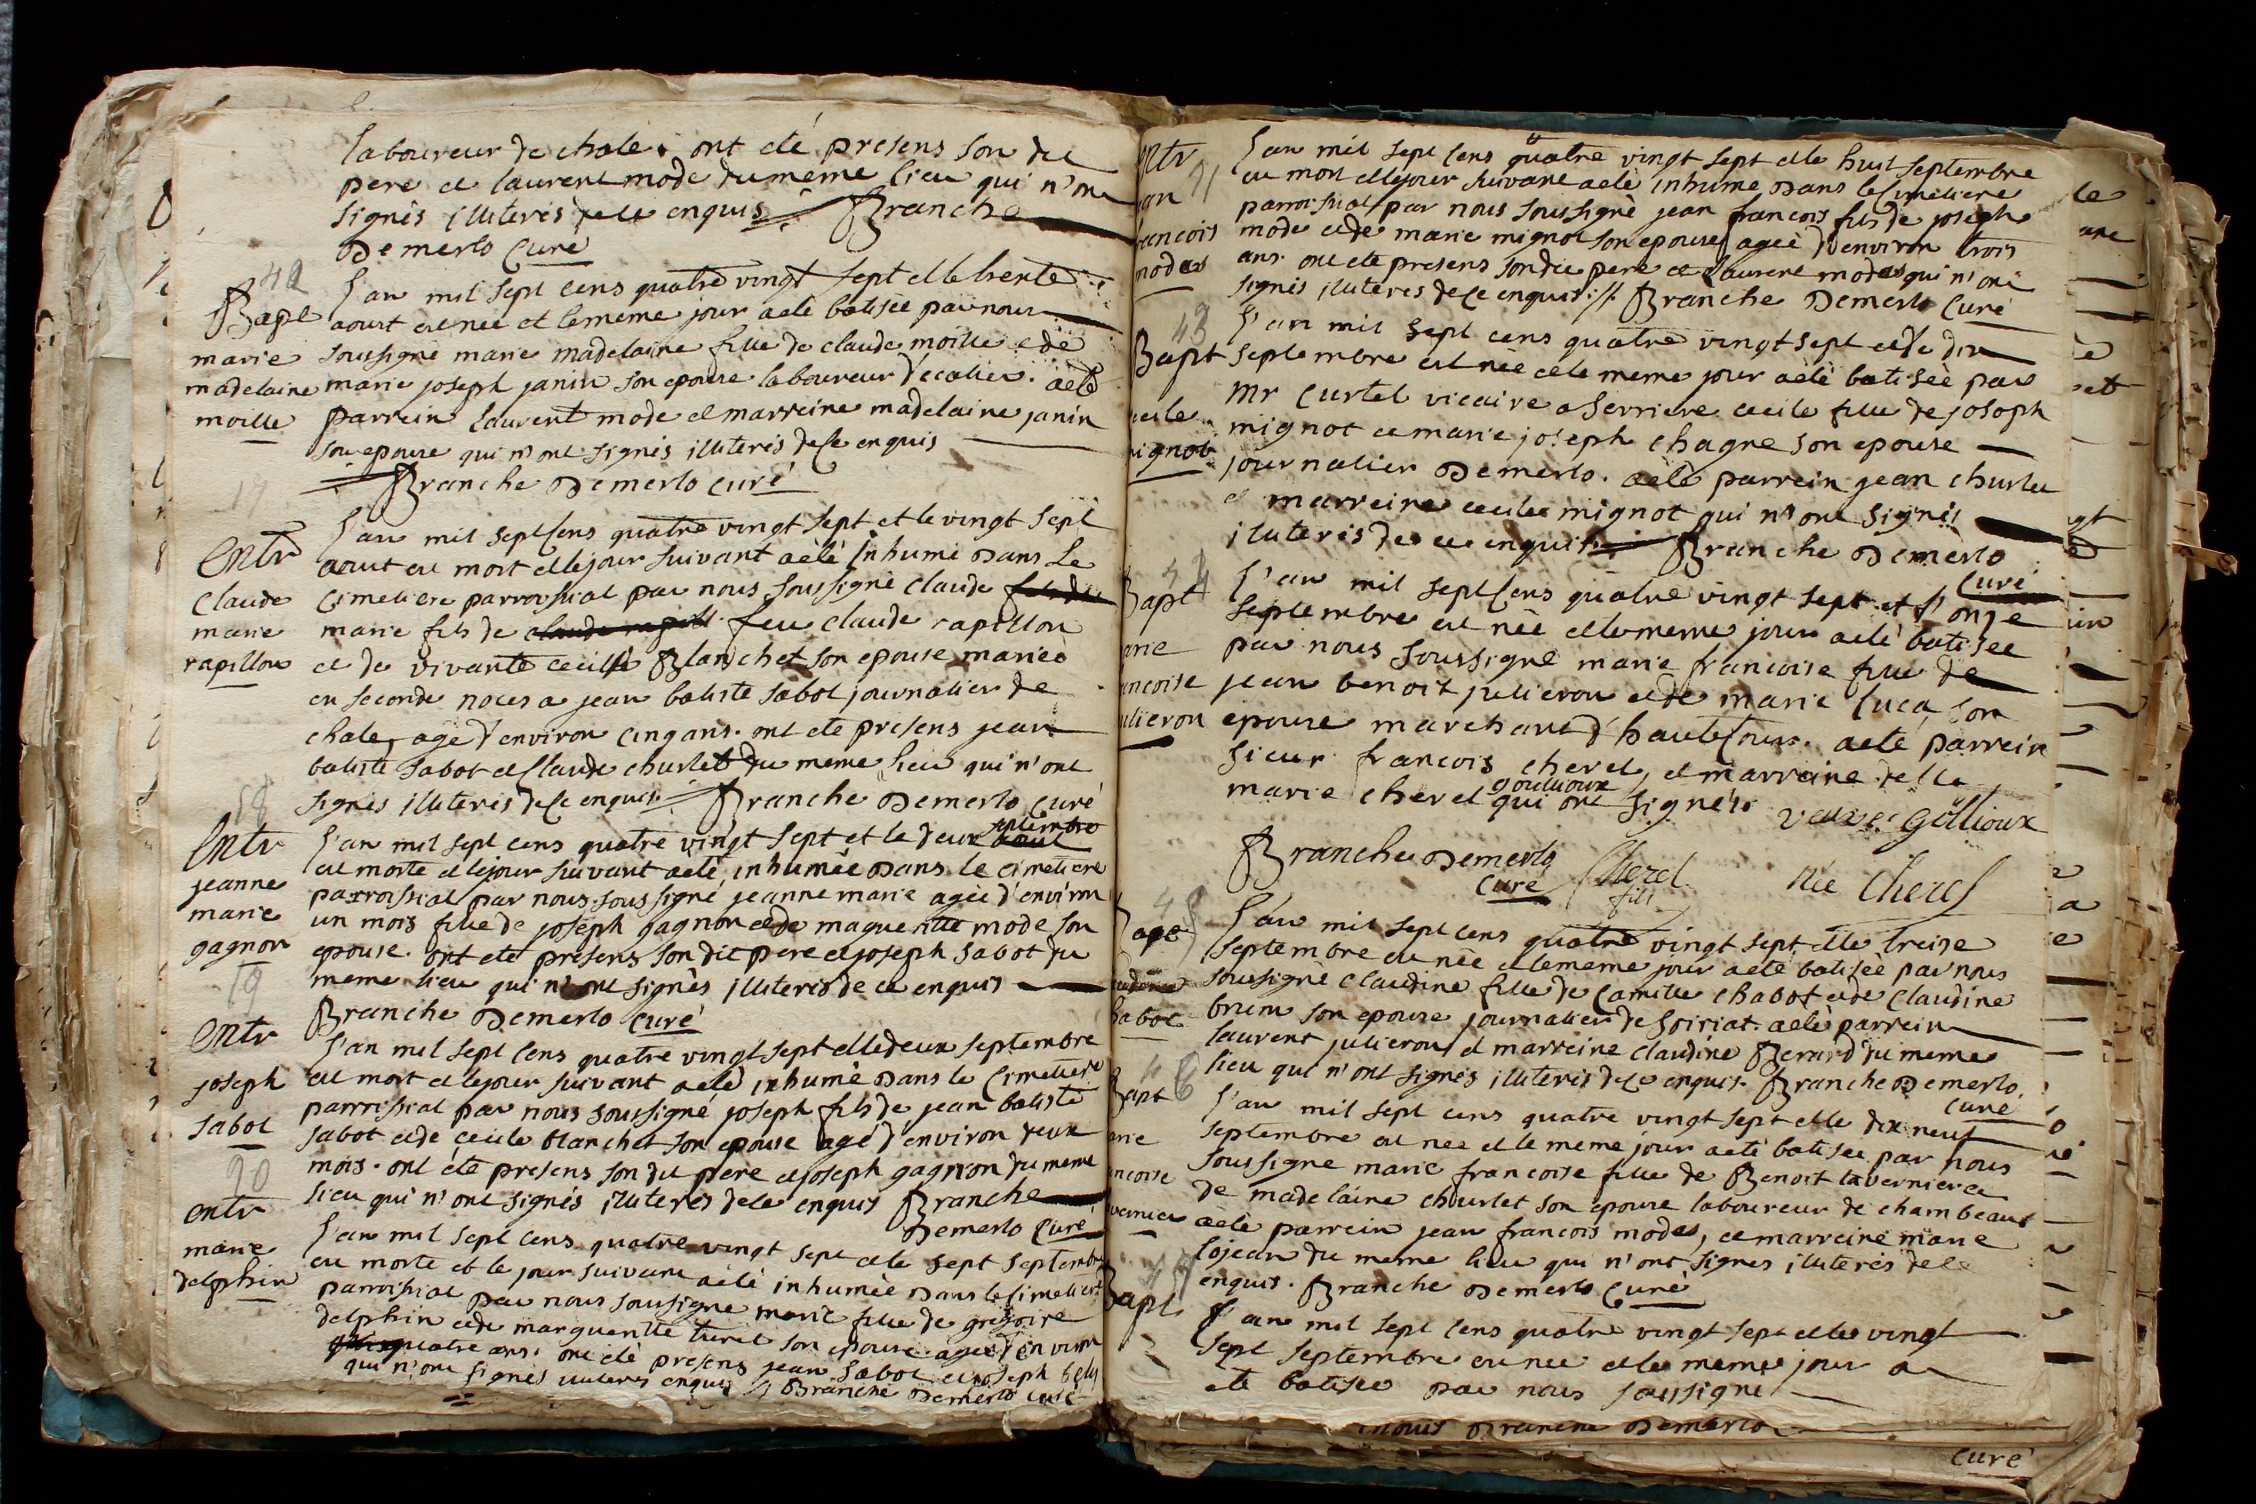 laboureur de chale. ont eté presens son dit
pere et laurent mode du meme lieu qui n'ont
signés illiterés de ce enquis Branche
Demerlo Curé
42
Bapt
marie
madelaine
moille
L'an mil sept cens quatre vingt sept et le trente
aoust est née et le meme jour a eté batisée par nous
soussigné marie madelaine fille de claude moille et de
marie joseph janin son epouse laboureur d'ecolier. a eté
parrein laurent mode et marreine madelaine janin
son epouse qui n'ont signés illiterés de ce enquis
Branche Demerlo curé
17
Entr
Claude
marie
rapillon
L'an mil sept cens quatre vingt sept et le vingt sept
aout est mort et le jour suivant a eté inhumé Dans Le
Cimetiere parroissial par nous soussigné Claude fils de
marie fils de claude rapill feu claude rapillon
et de vivante cecile Blanchet son epouse mariée
en seconde noces a jean batiste sabot journalier de
chale, agé d'environ cinq ans. ont eté presens jean
batiste sabot et Claude churlet du meme lieu qui n'ont
signés illiterés de ce enquis Branche Demerlo Curé
18
Entr
jeanne
marie
gagnon
L'an mil sept cens quatre vingt sept et le deux aout septembre
est morte et le jour suivant a eté inhumée Dans le cimetiere
parroissial par nous soussigné jeanne marie agée d'environ
un mois fille de joseph gagnon et de magueritte mode son
epouse. ont eté presens son dit pere et joseph sabot du
meme lieu qui n'ont signés illiterés de ce enquis
Branche Demerlo Curé
19
Entr
joseph
sabot
L'an mil sept cens quatre vingt sept et le deux septembre
est mort et le jour suivant a eté inhumé Dans le Cimetiere
parroissial par nous soussigné joseph fils de jean batiste
sabot et de cecile blanchet son epouse agé d'environ deux
mois. ont eté presens son dit pere et joseph gagnon du meme
lieu qui n'ont signés illiterés de ce enquis Branche
Demerlo Curé
20
entr
marie
delphin
L'an mil sept cens quatre vingt sept et le sept septembre
est morte et le jour suivant a eté inhumée Dans le Cimetiere
parroissial par nous soussigné marie fille de gregoire
delphin et de margueritte turel son epouse agée d'environ
quatre ans. ont eté presens jean sabot et joseph
qui n'ont signés illiterés enquis Branche Demerlo curé
entr
21
francois
modas
L'an mil sept cens quatre vingt sept et le huit septembre
est mort et le jour suivant a eté inhumé Dans le Cimetiere
parroissial par nous soussigné jean francois fils de joseph
mode et de marie mignot son epouse agéé d'environ trois
ans. ont eté presens son dit pere et laurent modas qui n'ont
signés illiterés de ce enquis Branche Demerlo Curé
43
Bapt
cecile
mignot
L'an mil sept cens quatre vingt sept et de dix
septembre est née et le meme jour a eté batisée par
Mr Curtel vicaire a Serriere cecile fille de joseph
mignot et marie joseph chagne son epouse
journalier Demerlo. a eté parrein jean churlet
et marreine cecile mignot qui n'ont signés
illiterés de ce enquis Branche Demerlo
Curé
44
Bapt
marie
francoise
julieron
L'an mil sept cens quatre vingt sept et l'onze
septembre est née et le meme jour a eté batisée
par nous soussigné marie francoise fille de
jean benoit julieron et de marie luca, son
epouse marchant d'hautecour. a eté parrein
sieur francois cherel, et marreine delle
marie cherel goullioux qui ont signés veuve gullioux
Branche Demerlo
Curé
Cherel
fils
née Cherel
45
Bapt
claudine
chabot
L'an mil sept cens quatre vingt sept et le treize
septembre est née et le meme jour a eté batisée par nous
soussigné claudine fille de Camille chabot et de Claudine
brun son epouse journalier de soiriat. a eté parrein
laurent julieron et marreine claudine Berard du meme
lieu qui n'ont signés illiterés de ce enquis. Branche Demerlo
curé
46
Bapt
marie
francoise
tavernier
L'an mil sept cens quatre vingt sept et le dix neuf
septembre est née et le meme jour a eté batisée par nous
soussigné marie francoise fille de Benoit tavernier et
de madelaine churlet son epouse laboureur de chambeaut
a eté parrein jean francois modas, et marreine marie
lojean du meme lieu qui n'ont signes illiterés de ce
enquis. Branche Demerlo Curé
47
Bapt
L'an mil sept cens quatre vingt sept et le vingt
sept septembre est née et le meme jour a
eté batisée par nous soussigné
Branche Demerlo
Curé